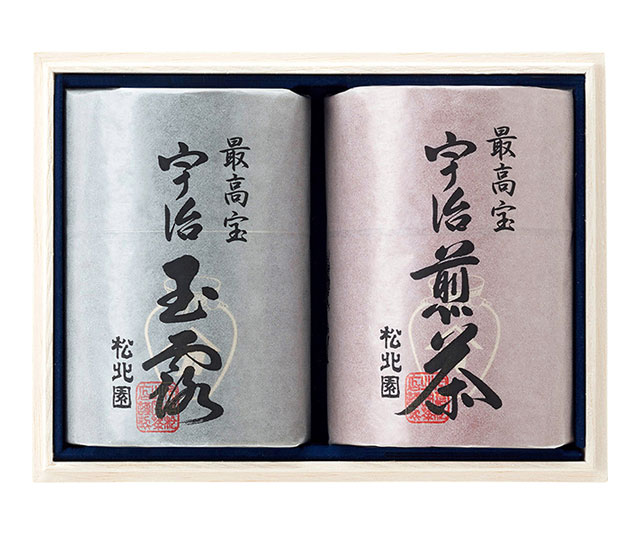 最高宝
宇治
玉露
松北園
最高宝
宇治
煎茶
松北園